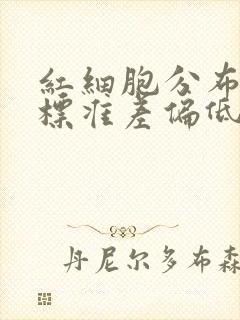 紅細胞分布
標准差偏低
丹尼尔多布森